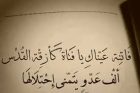 فاتنة عيناكِ يا فتاة كأزقة القدس
ألف عدوٍ يتمنى إحتلالها